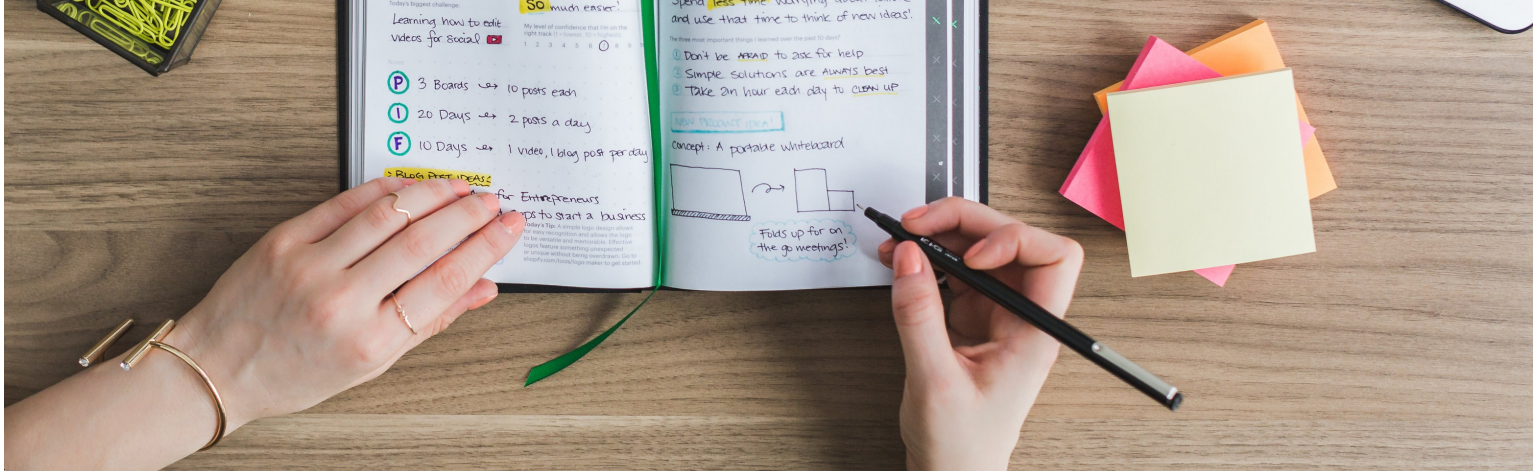 Today's biggest challenge:
Learning how to edit
videos for social
SO much easier!
My level of confidence that I'm on the
right track (1 = lowest, 10 = highest):
1 2 3 4 5 6 7 8 9
P 3 Boards → 10 posts each
I 20 Days → 2 posts a day
F 10 Days → 1 video, 1 blog post per day
BLOG POST IDEAS:
for Entrepreneurs
to start a business
Today's Tip: A simple logo design allows
for easy recognition and allows the logo
to be versatile and memorable. Effective
logos feature something unexpected
or unique without being overdrawn. Go to
shopify.com/tools/logo-maker to get started.
Spend less time worrying about
and use that time to think of new ideas!
The three most important things I learned over the past 10 days?
1 Don't be AFRAID to ask for help
2 Simple solutions are ALWAYS best
3 Take an hour each day to CLEAN UP
NEW PRODUCT IDEA!
Concept: A portable whiteboard
Folds up for on
the go meetings!